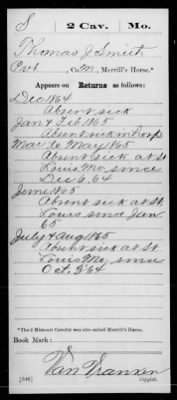 S 2 Cav. Mo.
Thomas J Smith
Pvt, Co. M, Merrill's Horse,*
Appears on Returns as follows:
Dec 1864
Absent sick
Jan & Feb 1865
Absent sick in hosp
Mar to May 1865
Absent sick at St
Louis Mo, since
Dec 6, 64
June 1865
Absent sick at St
Louis since Jan
65
July & Aug 1865
Absent sick at St.
Louis Mo, since
Oct. 3, 64
*The 2 Missouri Cavalry was also called Merrill's Horse.
Book Mark:
(546) Copyist.